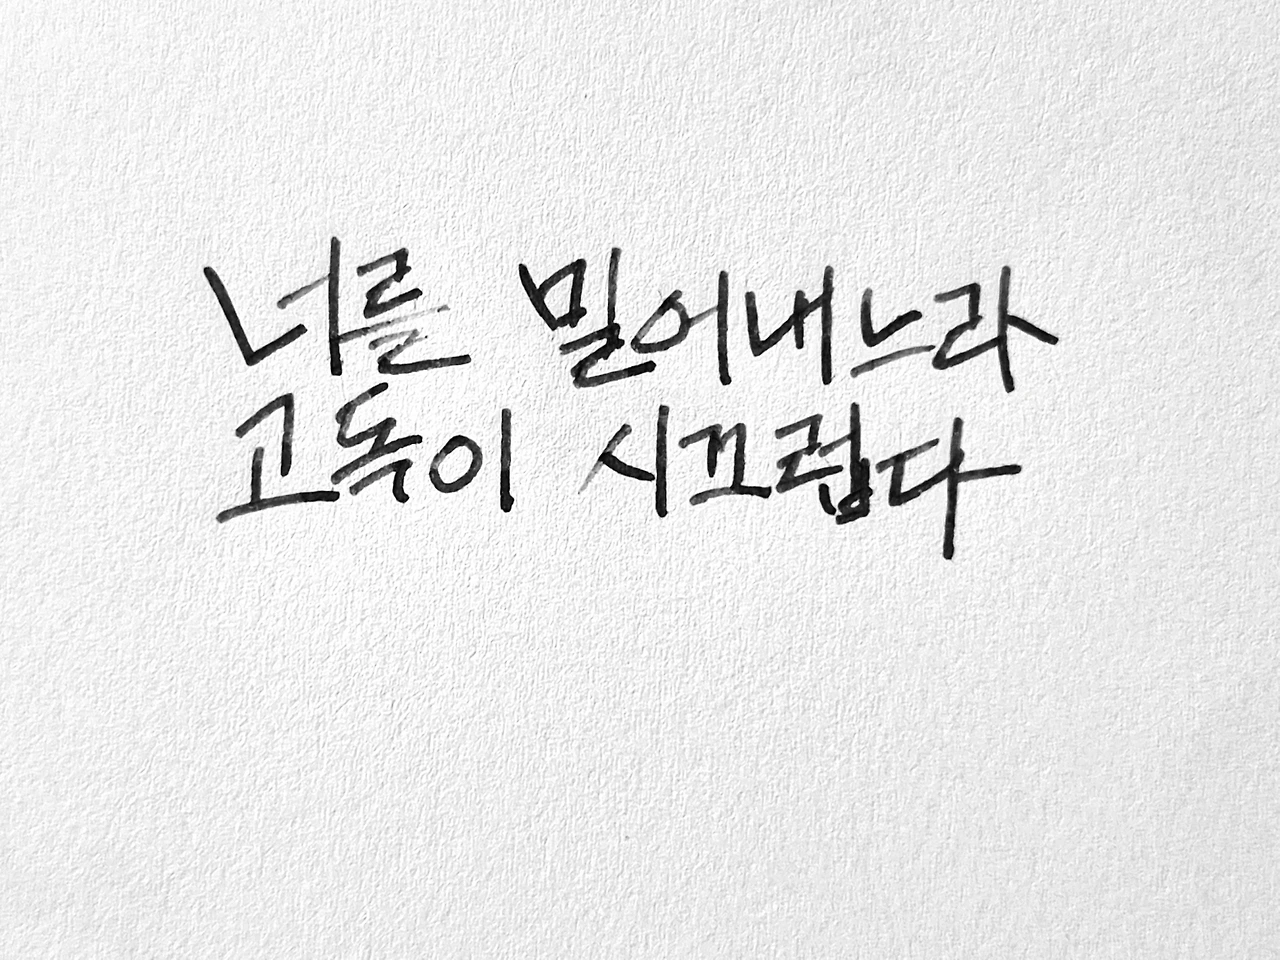 너를 밀어내느라
고독이 시끄럽다